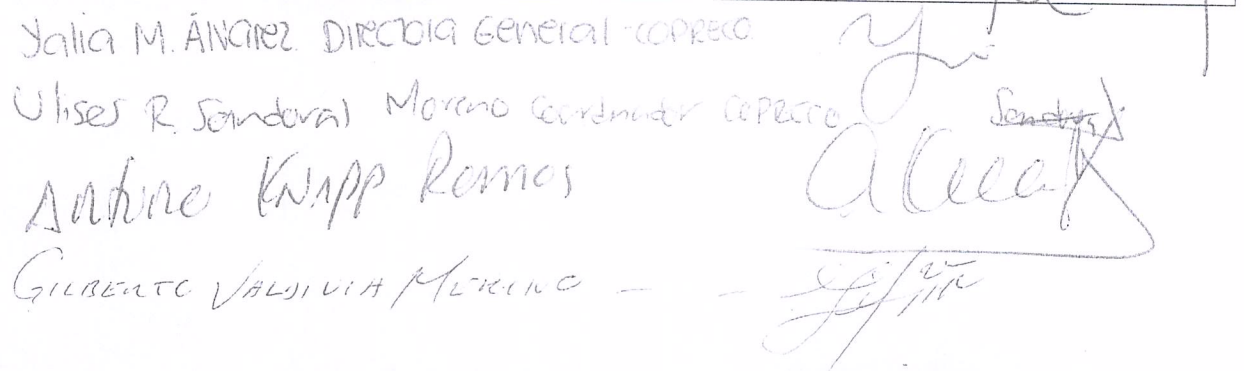 Yalia M. Álvarez Directora General COPRECO
Ulises R. Sandoval Moreno Coordinador COPRECO Sandoval
Arturo Knapp Ramos
GILBERTO VALDIVIA MERINO - -